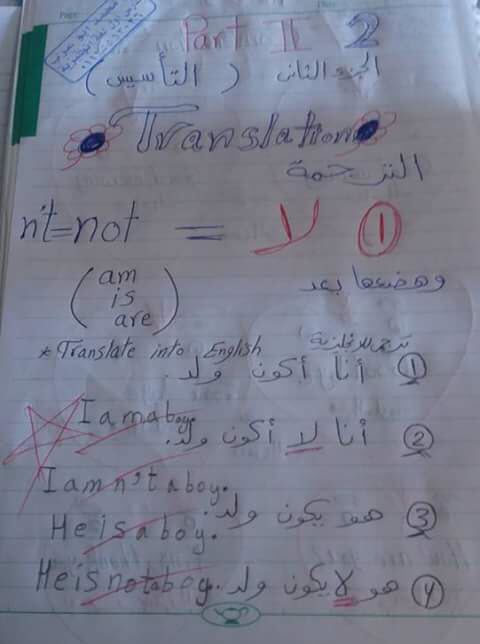 Part II 2
الجزء الثاني ( التأسيس )
Translation
الترجمة
n't = not = لا ①
( am is are ) وهضعها بعد
* Translate into English ترجم للانجليزية
① أنا أكون ولد.
I am a boy.
② أنا لا أكون ولد.
I am n't a boy.
③ هو يكون ولد.
He is a boy.
④ هو لا يكون ولد.
He is not a boy.